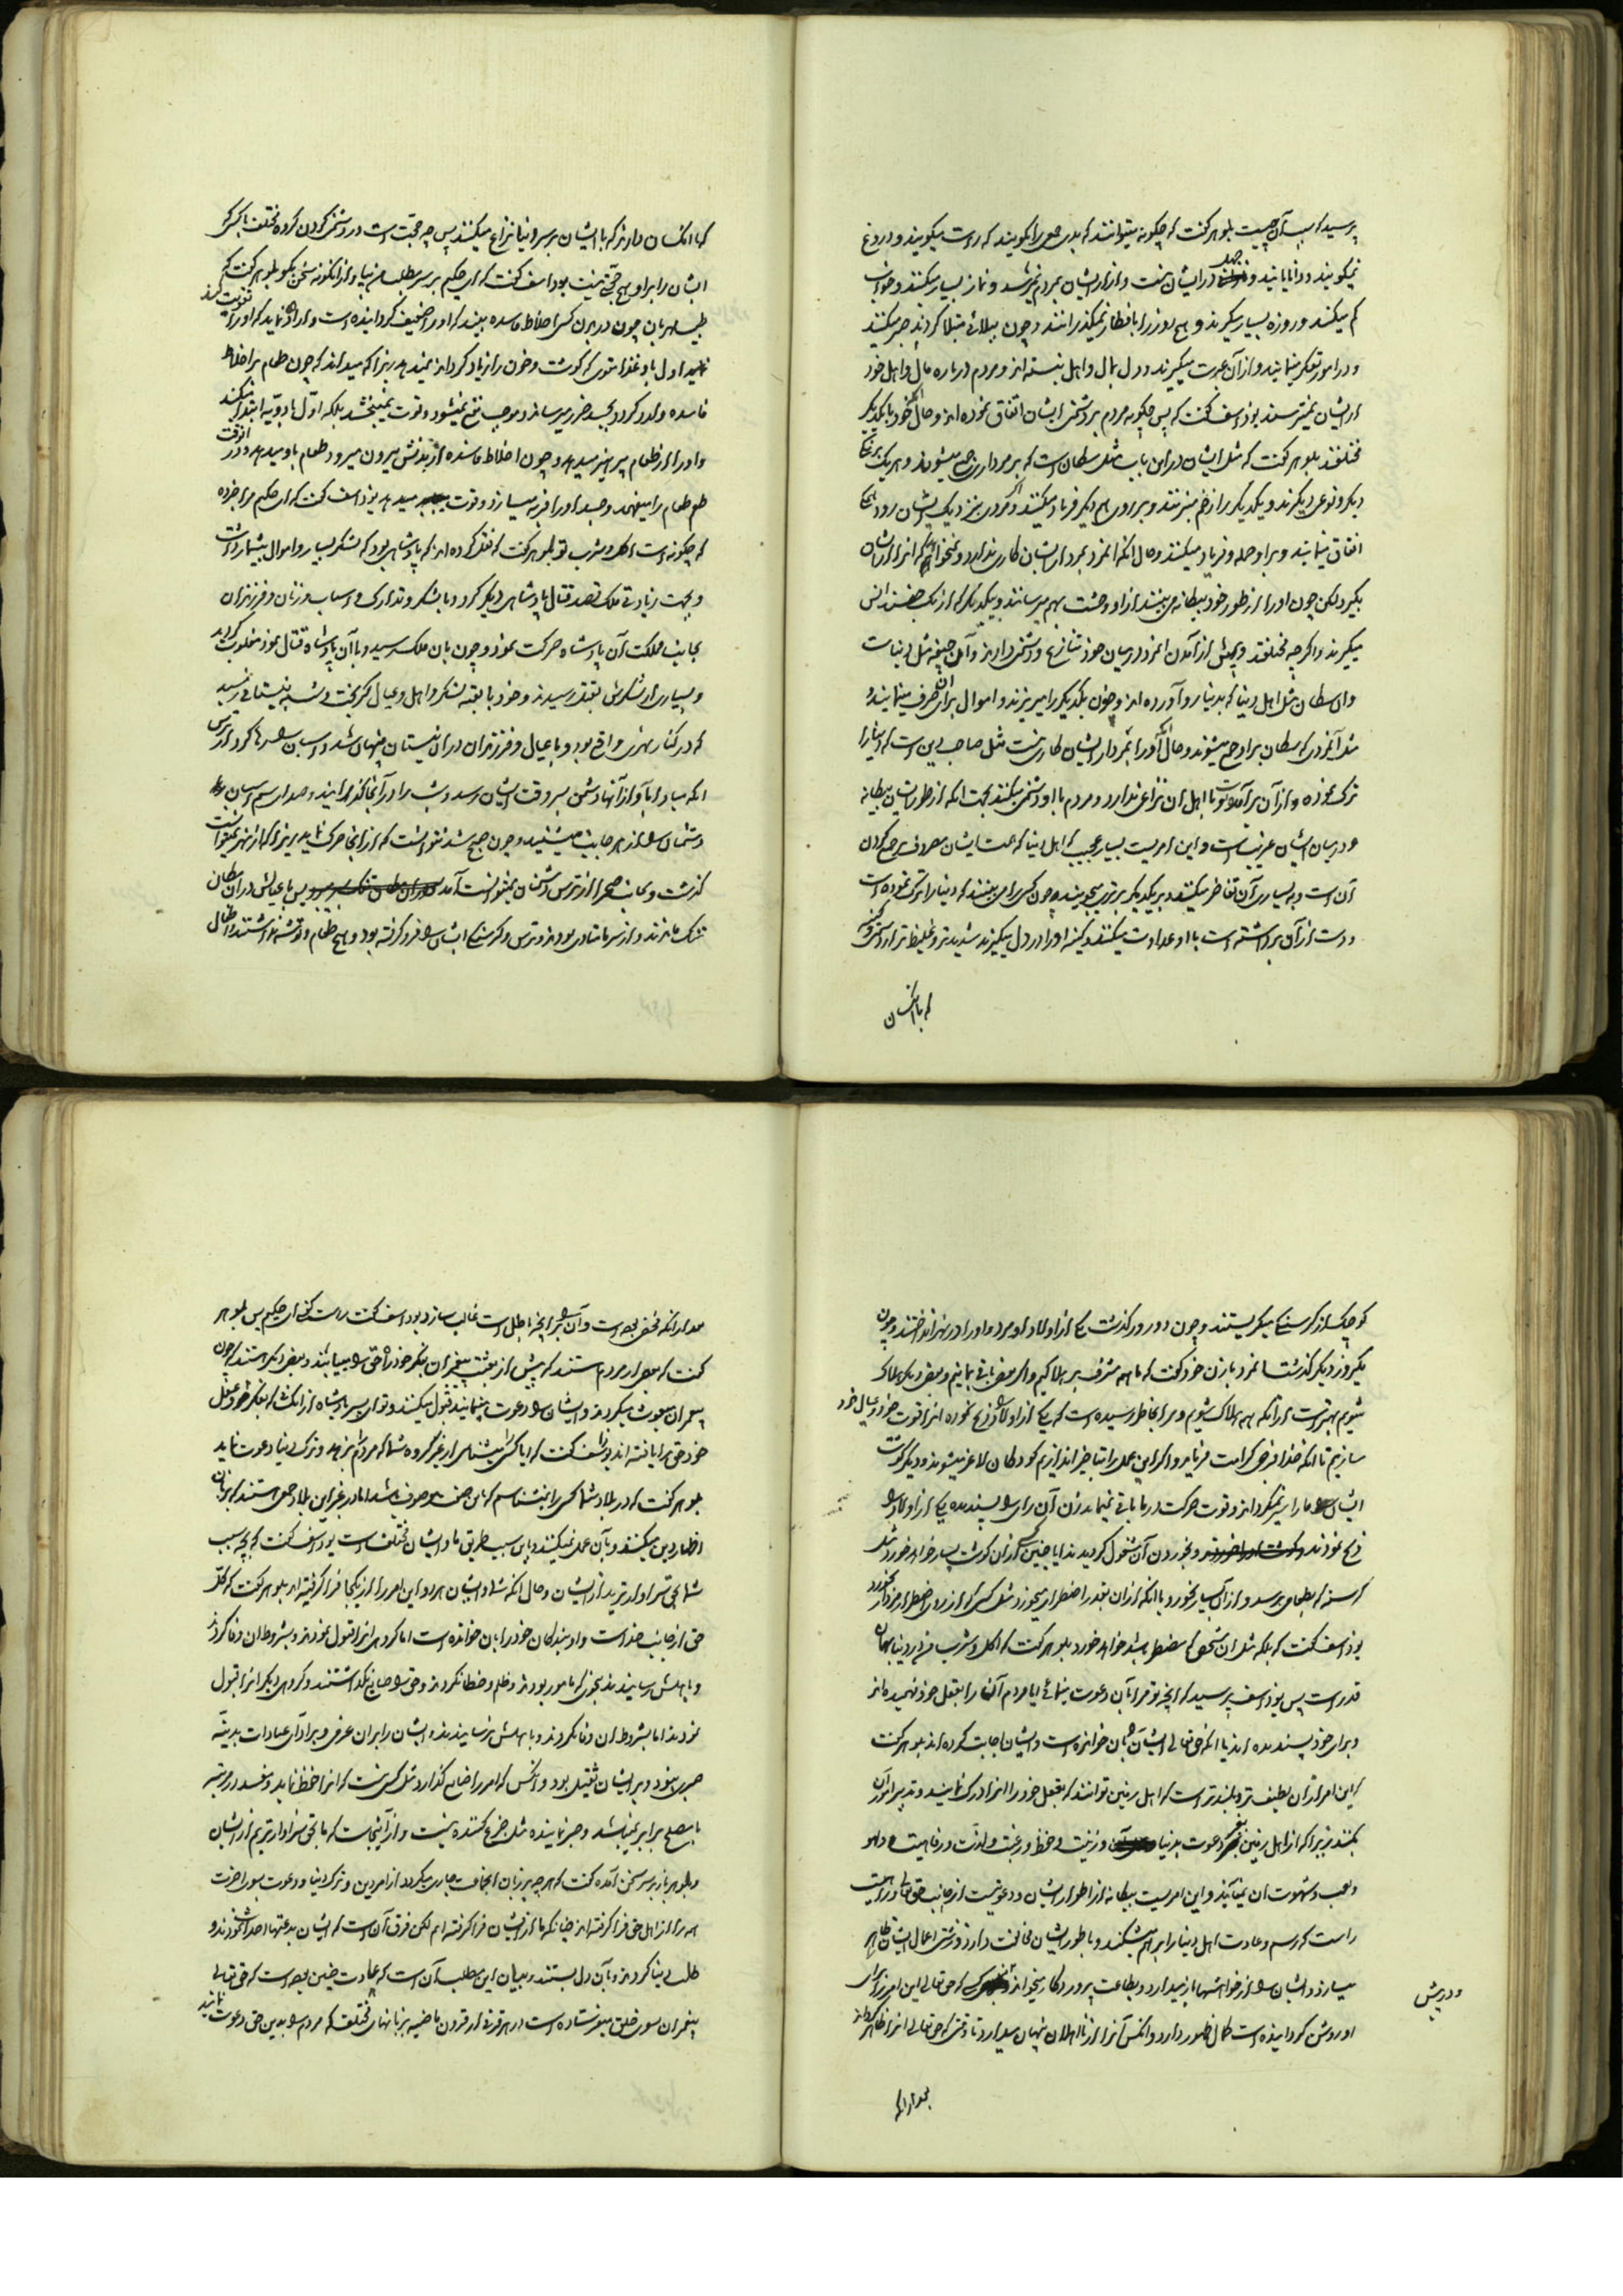 پرسید که سبب آن چیست بلوهر گفت که چگونه میتوانند که بدی جمعی را بگویند که راست میگویند و دروغ
نمیگویند و دانایانند و جهل در ایشان نیست و آزار ایشان بمردم نمیرسد و نماز بسیار میکنند و خواب
کم میکنند و روزه بسیار میگیرند و هیچ روز را بافطار نمیگذرانند و چون ببلائی مبتلا گردند صبر میکنند
و در امور تفکر مینمایند و از آن عبرت میگیرند و دل بمال و اهل نبسته‌اند و مردم درباره مال و اهل خود
از ایشان نمیترسند یوذاسف گفت که پس چگونه مردم بر دشمنی ایشان اتفاق نموده‌اند و حال آنکه خود با یکدیگر
مختلفند بلوهر گفت که مثل ایشان در این باب مثل سگان است که بر مرداری جمع میشوند و هر یک برنگ
دیگر و نوعی دیگرند و یکدیگر را زخم میزنند و بر روی هم دیگر فریاد میکنند و اگر مردی بنزدیک ایشان رود همه
اتفاق مینمایند و بر او حمله و فریاد میکنند و حال آنکه آن مرد بمردار ایشان کاری ندارد و نمیخواهد که آنرا از ایشان
بگیرد لکن چون او را از طور خود بیگانه می‌بینند از او وحشت بهم میرسانند و بیکدیگر که از یک جنسند انس
میگیرند و اگر چه مختلفند و پیش از آمدن آن مرد در میان خود تنازع و دشمنی دارند و آن جیفه مثل دنیاست
و آن سگان مثل اهل دنیا که بدنیا رو آورده‌اند و خون یکدیگر را میریزند و اموال برای آن صرف مینمایند و
مثل آنمردی که سگان بر او جمع میشوند و حال آنکه او را بمردار ایشان کاری نیست مثل صاحب دین است که دنیا را
ترک نموده و از آن برآمده و با اهل آن نزاعی ندارد و مردم با او دشمنی میکنند بجهت آنکه از طور ایشان بیگانه
و در میان ایشان غریب است و این امریست بسیار عجیب که اهل دنیا که همت ایشان مصروف بر جمع کردن
آن است و به بسیاری آن تفاخر میکنند و بر یکدیگر برتری میجویند چون کسی را می‌بینند که دنیا را ترک نموده است
و دست از آن برداشته است با او عداوت میکنند و کینه او را در دل میگیرند شدیدتر و غلیظ‌تر از دشمنی و کینه
که با کسان
که با کسان دارند که با ایشان بر سر دنیا نزاع میکنند پس چه حجت است در دشمنی کردن گروه مختلف با کسی که
ایشان را بر او هیچ حجتی نیست یوذاسف گفت که ای حکیم بر سر مطلب من بیا و از اینگونه سخن بگو بلوهر گفت که
طبیب مهربان چون در بدن کسی اخلاط فاسده بیند که او را ضعیف گردانیده است و اراده نماید که او را تقویت کند
نماید اول باو غذا‌هائی که گوشت و خون را زیاد گرداند نمیدهد زیرا که میداند که چون طعام بر اخلاط
فاسده وارد گردد بجسد ضرر میرساند و موجب نفع نمیشود و قوت نمیبخشد بلکه اول با دویه ابتدا میکند
و او را از طعام پرهیز میدهد و چون اخلاط فاسده از بدنش بیرون میرود طعام باو میدهد و در آنوقت
طعم طعام را میفهمد و جسد او را فربه میسازد و قوت میدهد یوذاسف گفت که ای حکیم مرا خبر ده
که چگونه است اکل و شرب تو بلوهر گفت که نقل کرده‌اند که پادشاهی بود که لشکر بسیار و اموال بیشمار داشت
و بجهت زیادتی ملک قصد قتال پادشاهی دیگر کرد و با لشکر و تدارک و اسباب و زنان و فرزندان
بجانب مملکت آن پادشاه حرکت نمود و چون بآن ملک رسید و با آن پادشاه قتال نمود مغلوب گردید
و بسیاری از لشکرش بقتل رسیدند و خود با بقیه لشکر و اهل و عیال گریخت و شب بنیستانی رسید
که در کنار نهری واقع بود و با عیال و فرزندان در آن نیستان پنهان شد و اسبان را رها کرد از ترس
آنکه مبادا بآواز آنها دشمن بسروقت ایشان رسد و شب را در آنجا گذرانیدند و صدای سم اسبان
دشمنان را از هر جانب میشنید و چون صبح شد نتوانست که از آنجا حرکت نماید زیرا که از نهر نمیتوانست
گذشت و بجانب صحرا از ترس دشمنان نمیتوانست آمد پس با عیالش در آن مکان
تنگ ماندند و از سرما متاذی بودند و ترس و گرسنگی ایشان را فرو گرفته بود و هیچ طعام و توشه نداشتند و اطفال
کوچک از گرسنگی میگریستند و چون دو روز گذشت یکی از اولاد او مرد و او را در نهر انداختند و چون
یک روز دیگر گذشت آنمرد بازن خود گفت که ما همه مشرف بر هلاکیم و اگر بعضی باقی بمانیم و بعضی دیگر هلاک
شویم بهتر است از آنکه همه هلاک شویم و مرا بخاطر رسیده است که یکی از اولاد را ذبح نموده آنرا قوت خود و عیال خود
سازیم تا آنکه خدا فرجی کرامت فرماید و اگر این عمل را بتاخیر اندازیم کودکان لاغر میشوند و دیگر گوشت
ایشان ما را سیر نمیگرداند و قوت حرکت در ما باقی نمیماند زن آن رای را پسندیده یکی از اولاد را
ذبح نمودند و بخوردن آن مشغول گردیدند آیا چنین کسی از آن گوشت بسیار خواهد خورد مثل
گرسنه که بطعامی برسد و از آن بسیار بخورد یا آنکه از آن بقدر اضطرار میخورد مثل کسی که از روی اضطرار مردار بخورد
یوذاسف گفت که بلکه مثل آن شخص که مضطر باشد خواهد خورد بلوهر گفت که اکل و شرب من در دنیا بهمان
قدر است پس یوذاسف پرسید که آنچه تو مرا بآن دعوت مینمائی آیا مردم آن را بعقل خود فهمیده‌اند
و برای خود پسندیده‌اند یا آنکه حق تعالی ایشان را بآن خوانده است و ایشان اجابت کرده‌اند بلوهر گفت
که این امر از آن لطیف‌تر و بلندتر است که اهل زمین توانند که بعقل خود آنرا ادراک نمایند و تدبیر امور آن
بکنند زیرا که از اهل زمین دعوت بدنیا و زینت و حظ و رغبت و لذت و رفاهیت و لهو
و لعب و شهوت آن مینمایند و این امریست بیگانه از اطوار ایشان و دعوتیست از جانب حق تعالی و راهیست
راست که رسم و عادت اهل دنیا را برهم میشکند و با طور ایشان مخالفت دارد و زشتی اعمال ایشان ظاهر
میسازد و ایشان را از خواهشها باز میدارد و بطاعت پروردگار میخواند و کسی که حق تعالی این امر را برای
او روشن گردانیده است کمال ظهور دارد و آنکس آنرا از نااهلان پنهان میدارد تا وقتی که حق تعالی آنرا ظاهر گرداند
و درپیش
بعد از آنکه
بعد از آنکه مخفی بوده است و آن را بر آنچه باطل است غالب سازد یوذاسف گفت راست گفتی ای حکیم پس بلوهر
گفت که بعضی از مردم هستند که پیش از بعثت پیغمبران بفکر خود راه حق را مییابند و بعضی دیگر هستند که چون
پیغمبران مبعوث میگردند و ایشان را دعوت مینمایند قبول میکنند و تو ای پسر پادشاه از آنکسانی که بفکر خود و عقل
خود حق را یافته‌اند یوذاسف گفت که آیا کسی را میشناسی از غیر گروه شما که مردم را بزهد و ترک دنیا دعوت نماید
بلوهر گفت که در بلاد شما کسی را نمیشناسم که باین صفت موصوف باشد اما در غیر این بلاد جمعی هستند که بزبان
اظهار دین میکنند و بآن عمل نمیکنند و باین سبب طریق ما و ایشان مختلف است یوذاسف گفت که بچه سبب
شما بحق سزاوارترید از ایشان و حال آنکه شما و ایشان هر دو این امر را از یکجا فرا گرفته‌اید بلوهر گفت که کل
حق از جانب خداست و او بندگان خود را بآن خوانده است اما گروهی آنرا قبول نمودند و بشروط آن وفا کردند
و باهلش رسانیدند بنحوی که مامور بودند و ظلم و خطا نکردند و حق را ضایع نگذاشتند و گروهی دیگر آنرا قبول
نمودند اما بشروط آن وفا نکردند و باهلش نرسانیدند و ایشان را بر آن عزمی و بر ادای عبادات بدنیه
صبری نبود و بر ایشان ثقیل بود و آنکس که امر را ضایع گذارد مثل کسی نیست که آنرا حفظ نماید و مفسد در مرتبه
با مصلح برابر نمیباشد و صبر نماینده مثل جزع کننده نیست و از آنجاست که ما بحق سزاوارتریم از ایشان
و بلوهر باز بر سر سخن آمده گفت که هر چه بر زبان آنجماعت جاری میگردد از امر دین و ترک دنیا و دعوت بسوی آخرت
همه را از اهل حق فرا گرفته‌اند چنانکه ما از ایشان فرا گرفته‌ایم لکن فرق آن است که ایشان بدعتها احداث نمودند و
طلب دنیا کردند و بآن دل بستند و بیان این مطلب آن است که عادت چنین بوده است که حق تعالی
پیغمبران سوی خلق میفرستاده است در هر قرنی از قرون ماضیه بزبانهای مختلف که مردم را بدین حق دعوت نمایند